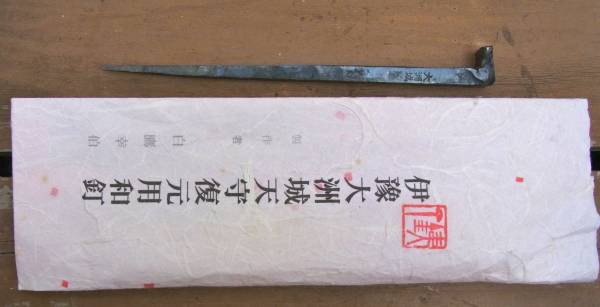 大洲城
伊豫大洲城天守復元用和釘
製作者 白鷹幸伯